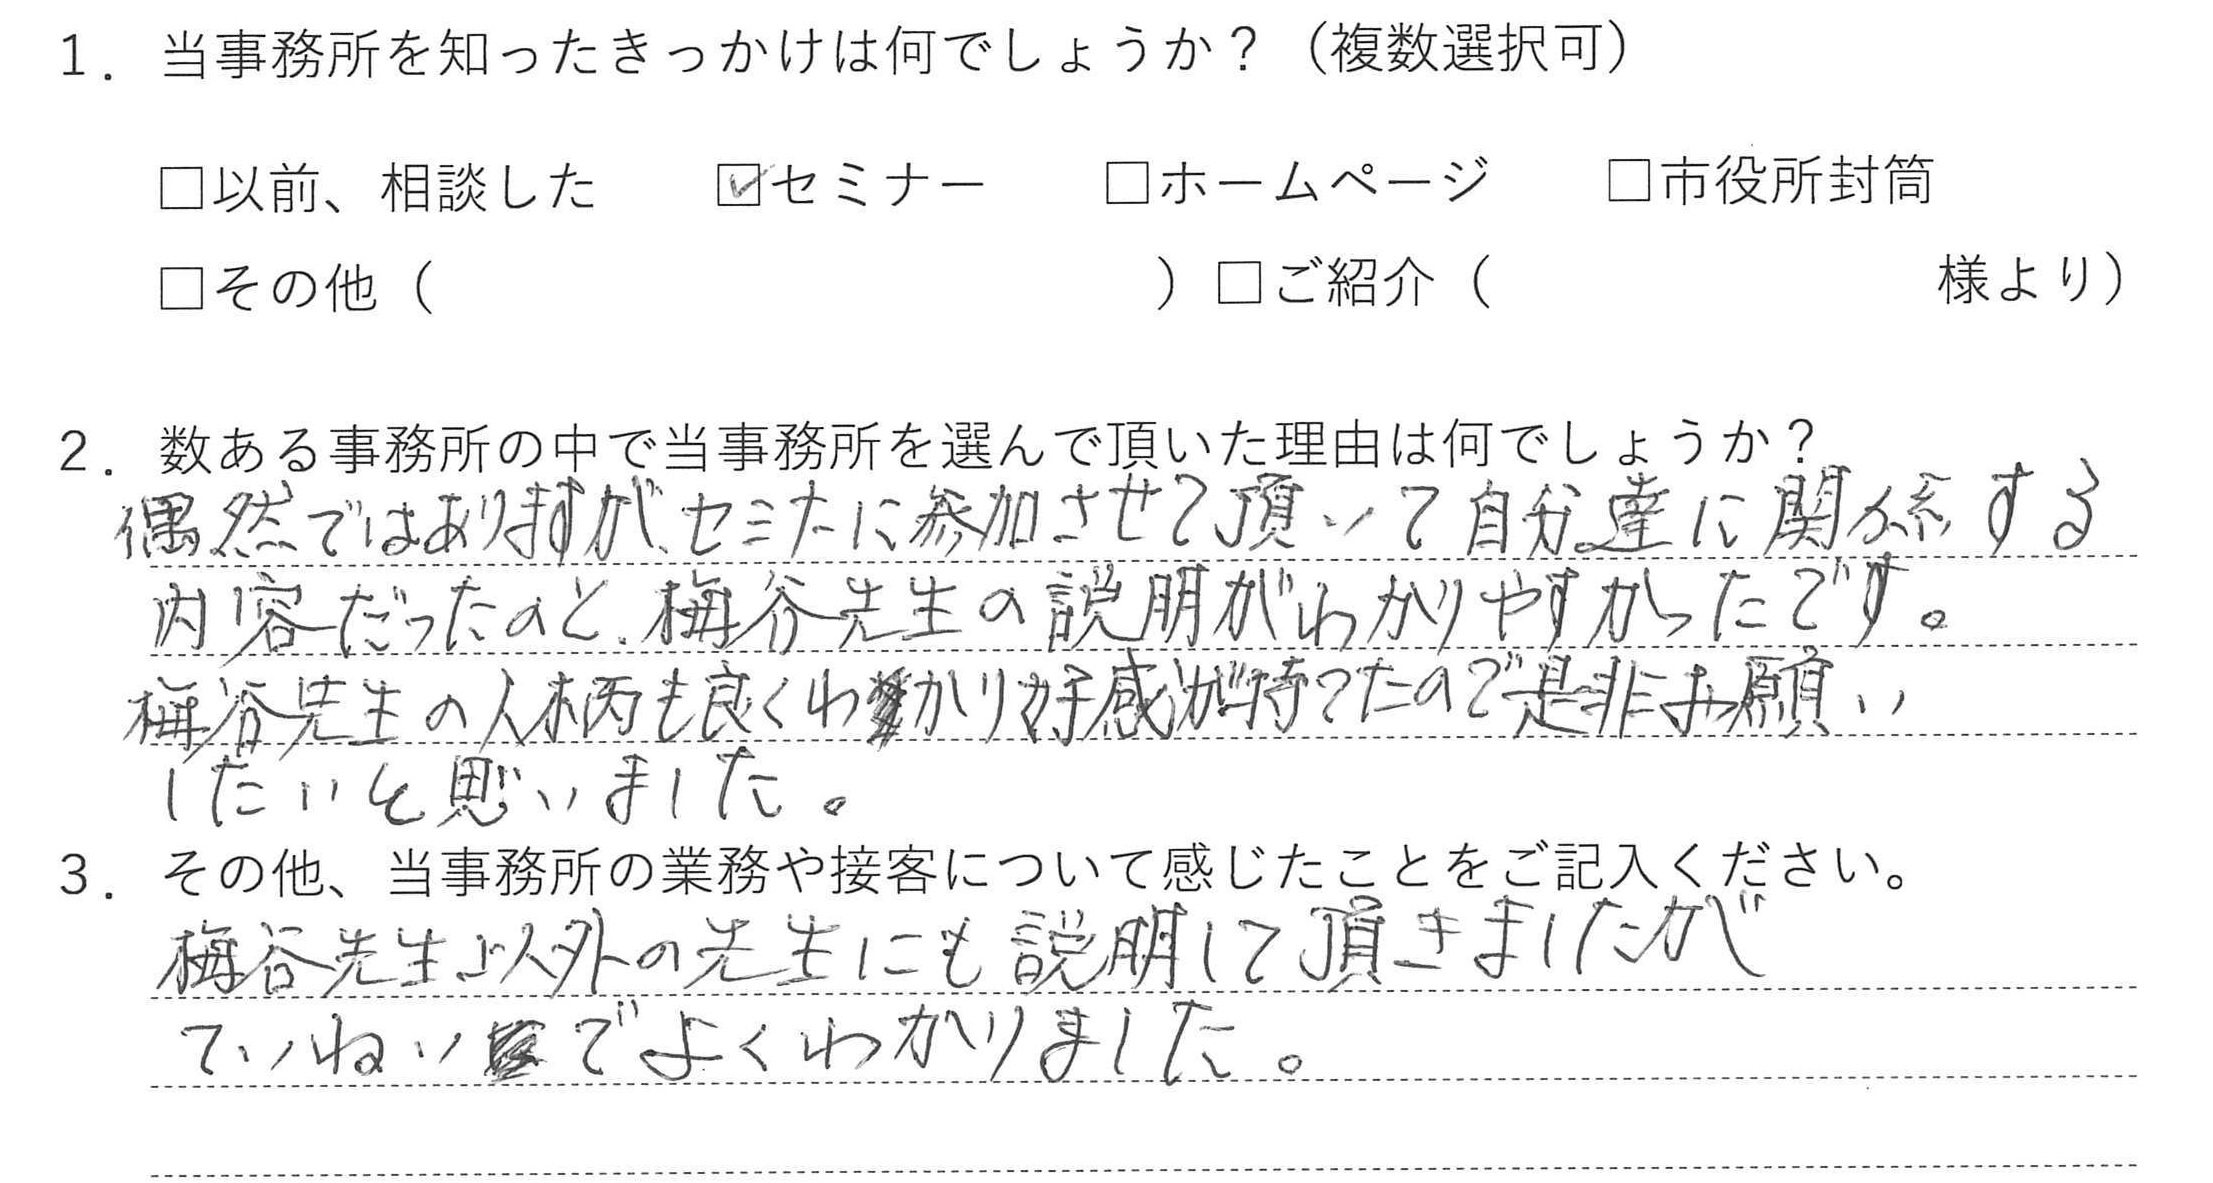 1．当事務所を知ったきっかけは何でしょうか？（複数選択可）
□以前、相談した　☑セミナー　□ホームページ　□市役所封筒
□その他（　　　　　）□ご紹介（　　　　　様より）
2．数ある事務所の中で当事務所を選んで頂いた理由は何でしょうか？
偶然ではありますが、セミナーに参加させて頂いて自分達に関係する
内容だったのと、梅谷先生の説明がわかりやすかったです。
梅谷先生の人柄も良くわかり好感が持てたので是非お願い
したいと思いました。
3．その他、当事務所の業務や接客について感じたことをご記入ください。
梅谷先生以外の先生にも説明して頂きましたが
ていねいでよくわかりました。